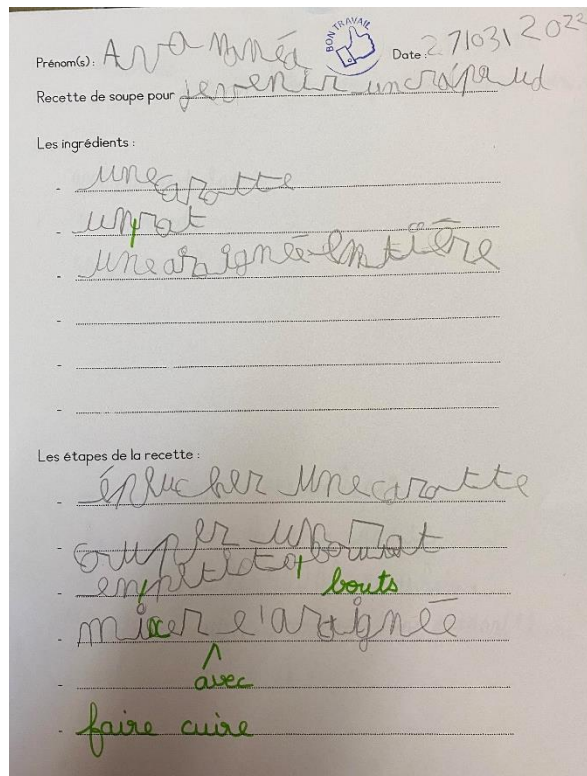 BON TRAVAIL
Prénom(s) : Ava Manéa Date : 27/03/2022
Recette de soupe pour devenir un crapaud
Les ingrédients :
- une carotte
- un rat
- une araignée entière
-
-
-
Les étapes de la recette :
- éplucher une carotte
- couper un rat
- en petits bouts
- mixer l'araignée
- avec
- faire cuire